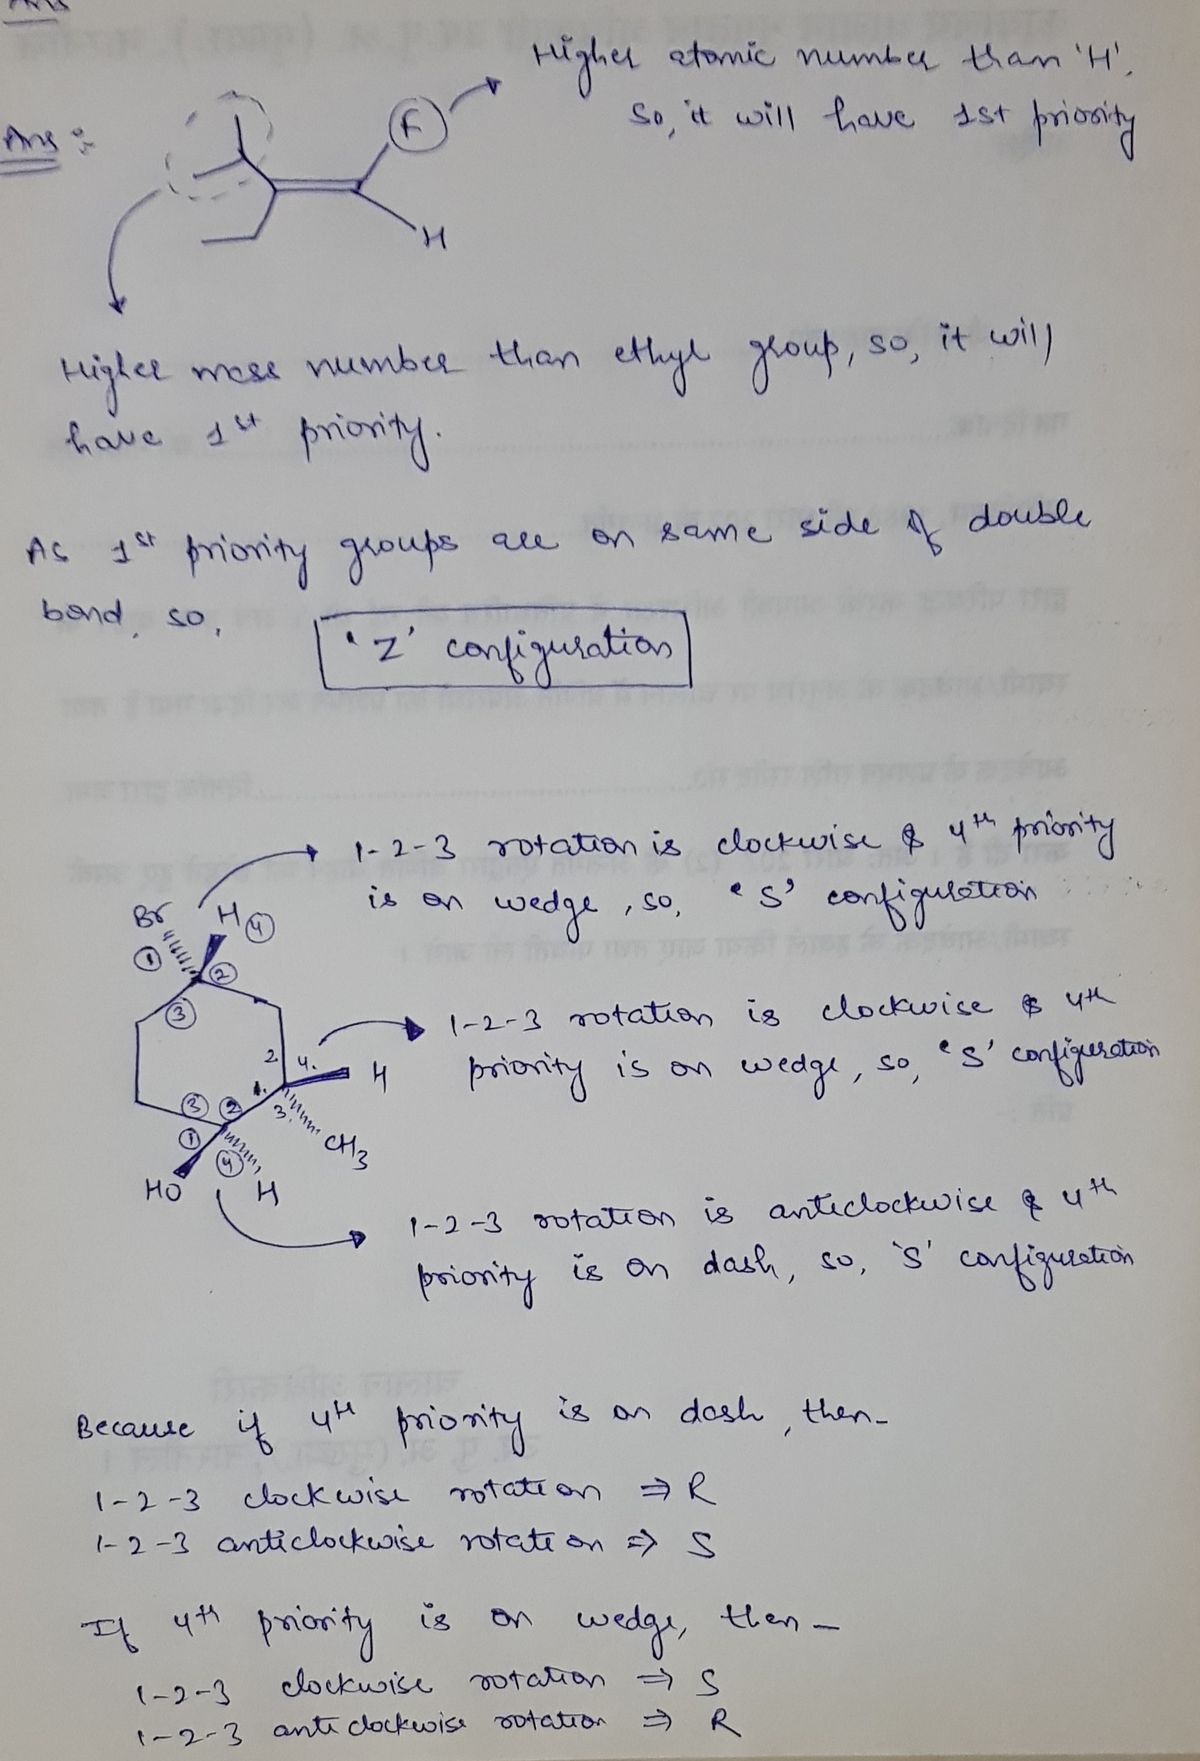 Ans
Higher atomic number than 'H'.
So, it will have 1st priority
Ans :-
F
H
Higher mass number than ethyl group, so, it will
have 1st priority.
As 1st priority groups are on same side of double
bond, so,
'Z' configuration
1-2-3 rotation is clockwise & 4th priority
is on wedge, so, 'S' configuration
Br H 4
1 2
3
1-2-3 rotation is clockwise & 4th
priority is on wedge, so, 'S' configuration
2. 4. H
1.
3 2 3.
1 CH3
4
HO H
1-2-3 rotation is anticlockwise & 4th
priority is on dash, so, 'S' configuration
Because if 4th priority is on dash, then-
1-2-3 clockwise rotation ⇒ R
1-2-3 anticlockwise rotation ⇒ S
If 4th priority is on wedge, then-
1-2-3 clockwise rotation ⇒ S
1-2-3 anticlockwise rotation ⇒ R